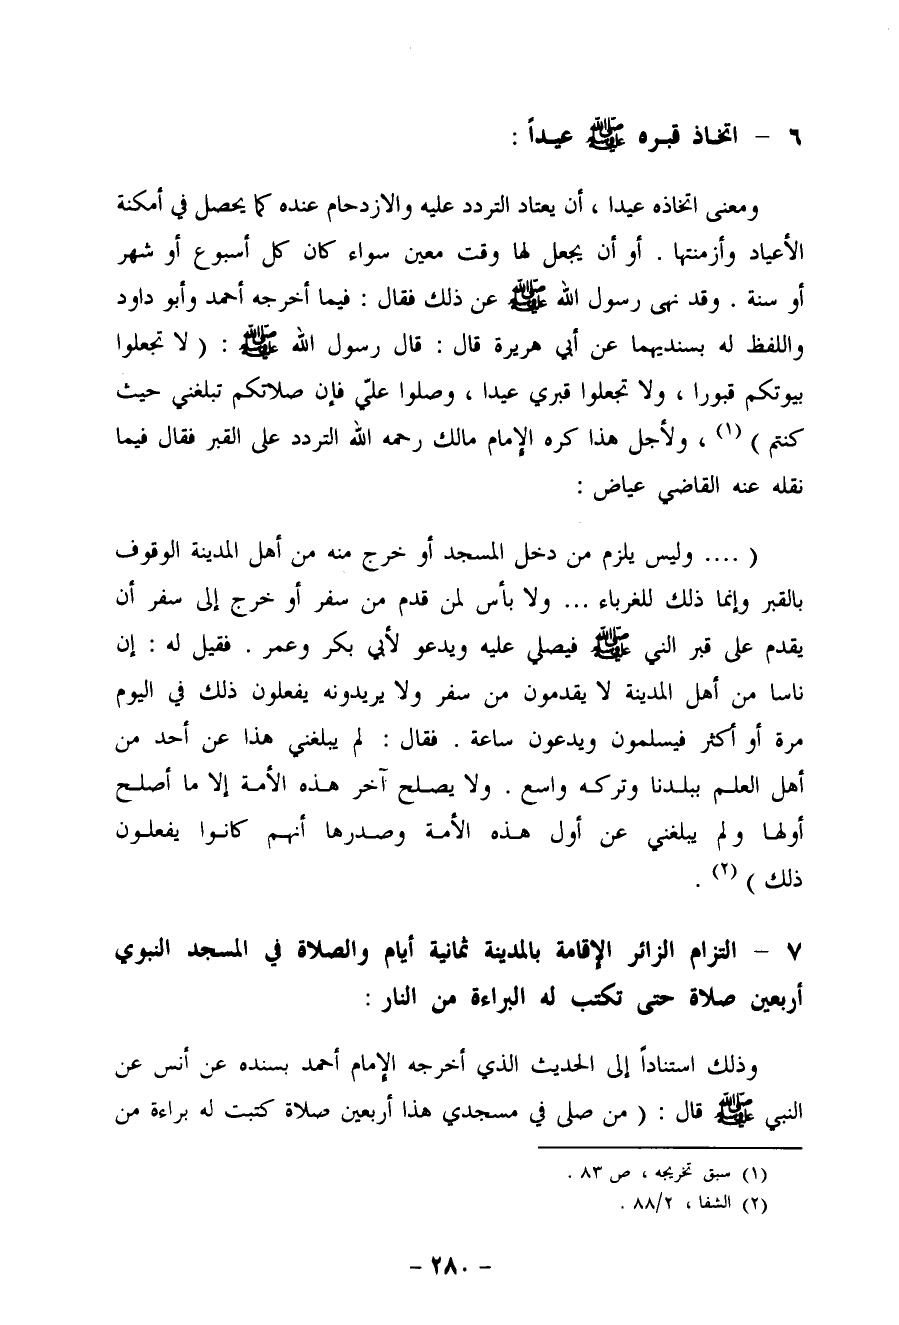 ٦ - اتخاذ قبره ﷺ عيداً :
ومعنى اتخاذه عيدا ، أن يعتاد التردد عليه والازدحام عنده كما يحصل في أمكنة
الأعياد وأزمنتها . أو أن يجعل لها وقت معين سواء كان كل أسبوع أو شهر
أو سنة . وقد نهى رسول الله ﷺ عن ذلك فقال : فيما أخرجه أحمد وأبو داود
واللفظ له بسنديهما عن أبي هريرة قال : قال رسول الله ﷺ : ( لا تجعلوا
بيوتكم قبورا ، ولا تجعلوا قبري عيدا ، وصلوا عليّ فإن صلاتكم تبلغني حيث
كنتم ) (١) ، ولأجل هذا كره الإمام مالك رحمه الله التردد على القبر فقال فيما
نقله عنه القاضي عياض :
( .... وليس يلزم من دخل المسجد أو خرج منه من أهل المدينة الوقوف
بالقبر وإنما ذلك للغرباء ... ولا بأس لمن قدم من سفر أو خرج إلى سفر أن
يقدم على قبر النبي ﷺ فيصلي عليه ويدعو لأبي بكر وعمر . فقيل له : إن
ناسا من أهل المدينة لا يقدمون من سفر ولا يريدونه يفعلون ذلك في اليوم
مرة أو أكثر فيسلمون ويدعون ساعة . فقال : لم يبلغني هذا عن أحد من
أهل العلم ببلدنا وتركه واسع . ولا يصلح آخر هذه الأمة إلا ما أصلح
أولها ولم يبلغني عن أول هذه الأمة وصدرها أنهم كانوا يفعلون
ذلك ) (٢) .
٧ - التزام الزائر الإقامة بالمدينة ثمانية أيام والصلاة في المسجد النبوي
أربعين صلاة حتى تكتب له البراءة من النار :
وذلك استناداً إلى الحديث الذي أخرجه الإمام أحمد بسنده عن أنس عن
النبي ﷺ قال : ( من صلى في مسجدي هذا أربعين صلاة كتبت له براءة من
(١) سبق تخريجه ، ص ٨٣ .
(٢) الشفا ، ٨٨/٢ .
- ٢٨٠ -